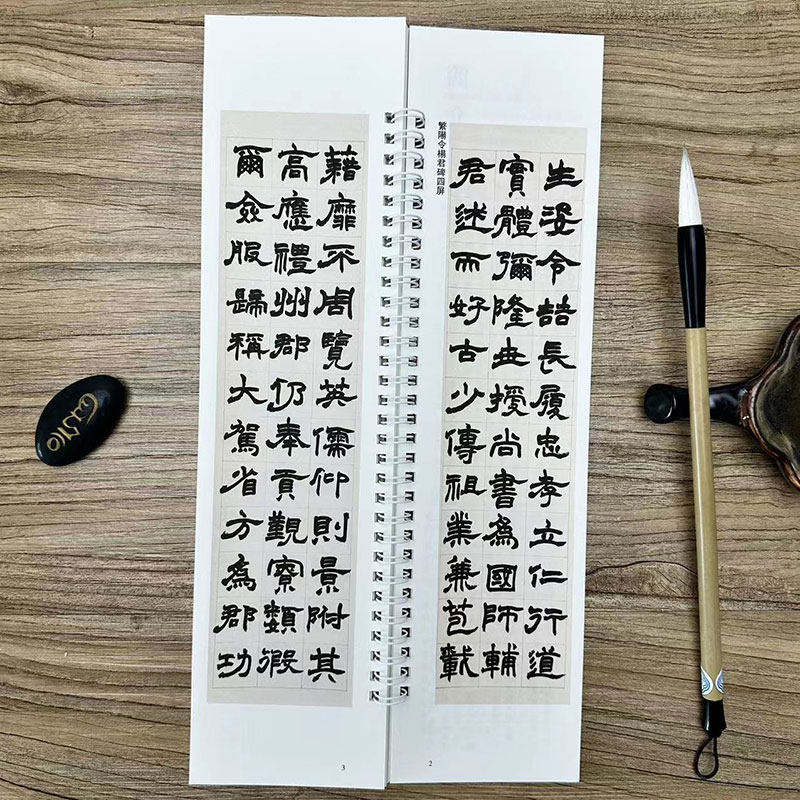 繁陽令楊君碑四屏
生姿令喆長履忠孝立仁行道
實體彌隆世授尚書為國師輔
君述而好古少傳祖業兼苞載
2
藉靡不周覽英儒仰則景附其
高應禮州郡仍奉貢覲寮類假
爾僉服歸稱大駕省方為郡功
3